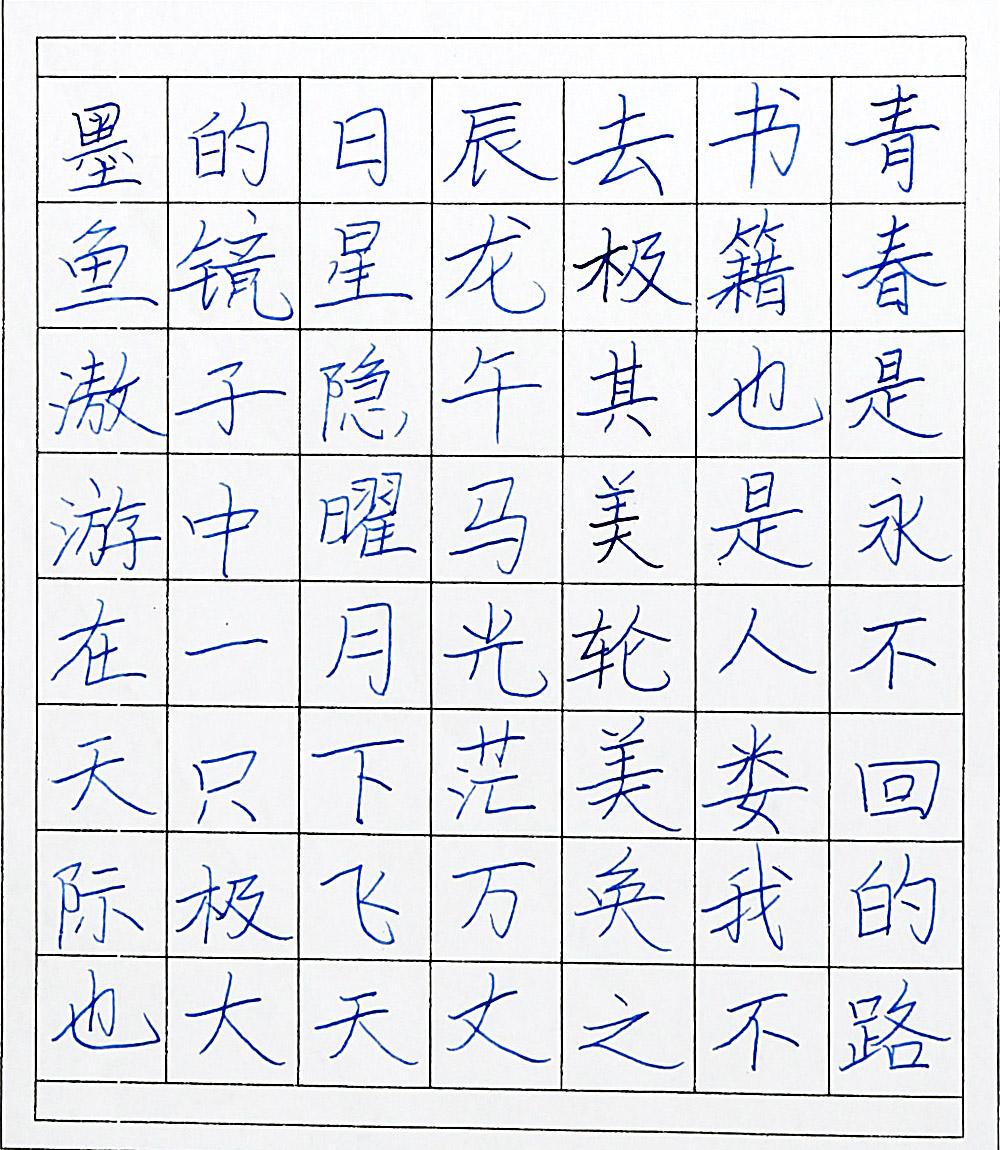 青春是永不回的路
书籍也是人娄我不
去极其美轮美奂之
辰龙午马光茫万丈
日星隐曜月下飞天
的镜子中一只极大
墨鱼滶游在天际也